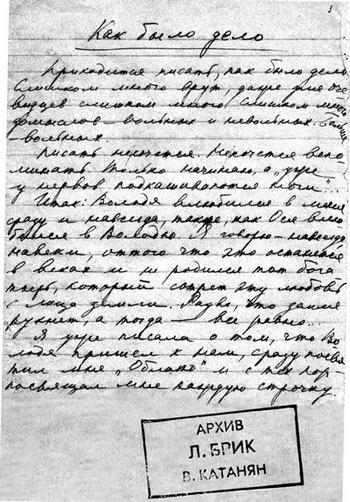 Как было дело
Приходится писать, как было дело
Слишком много врут, даже для оче
видцев слишком много слишком много
домыслов – вольных и невольных. Больше
– вольных
Писать не хочется. Не хочется вспо
минать. Только начинаю, а "уже
у нервов подкашиваются ноги"...
Итак: Володя влюбился в меня
сразу и навсегда, также, как Ося влю
бился в Володю. Я говорю – навсегда,
навеки, оттого что это останется
в веках и не родился тот бога
тырь, который сотрет эту любовь
с лица земли. Разве, что земля
рухнет, а тогда – все равно...
Я уже писала о том, что Во
лодя пришел к нам, сразу посвя
тил мне "Облако" и с тех пор
посвящал мне каждую строчку.
АРХИВ
Л. БРИК
В. КАТАНЯН